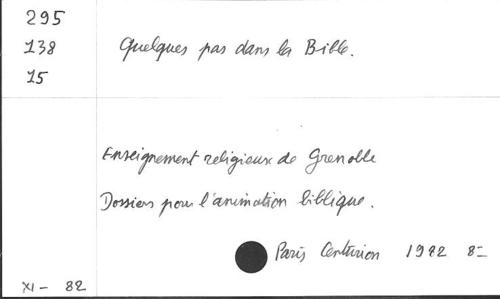 295
138
15
Quelques pas dans la Bible.
Enseignement religieux de Grenoble
Dossiers pour l'animation biblique.
Paris Centurion 1982 8=
XI- 82